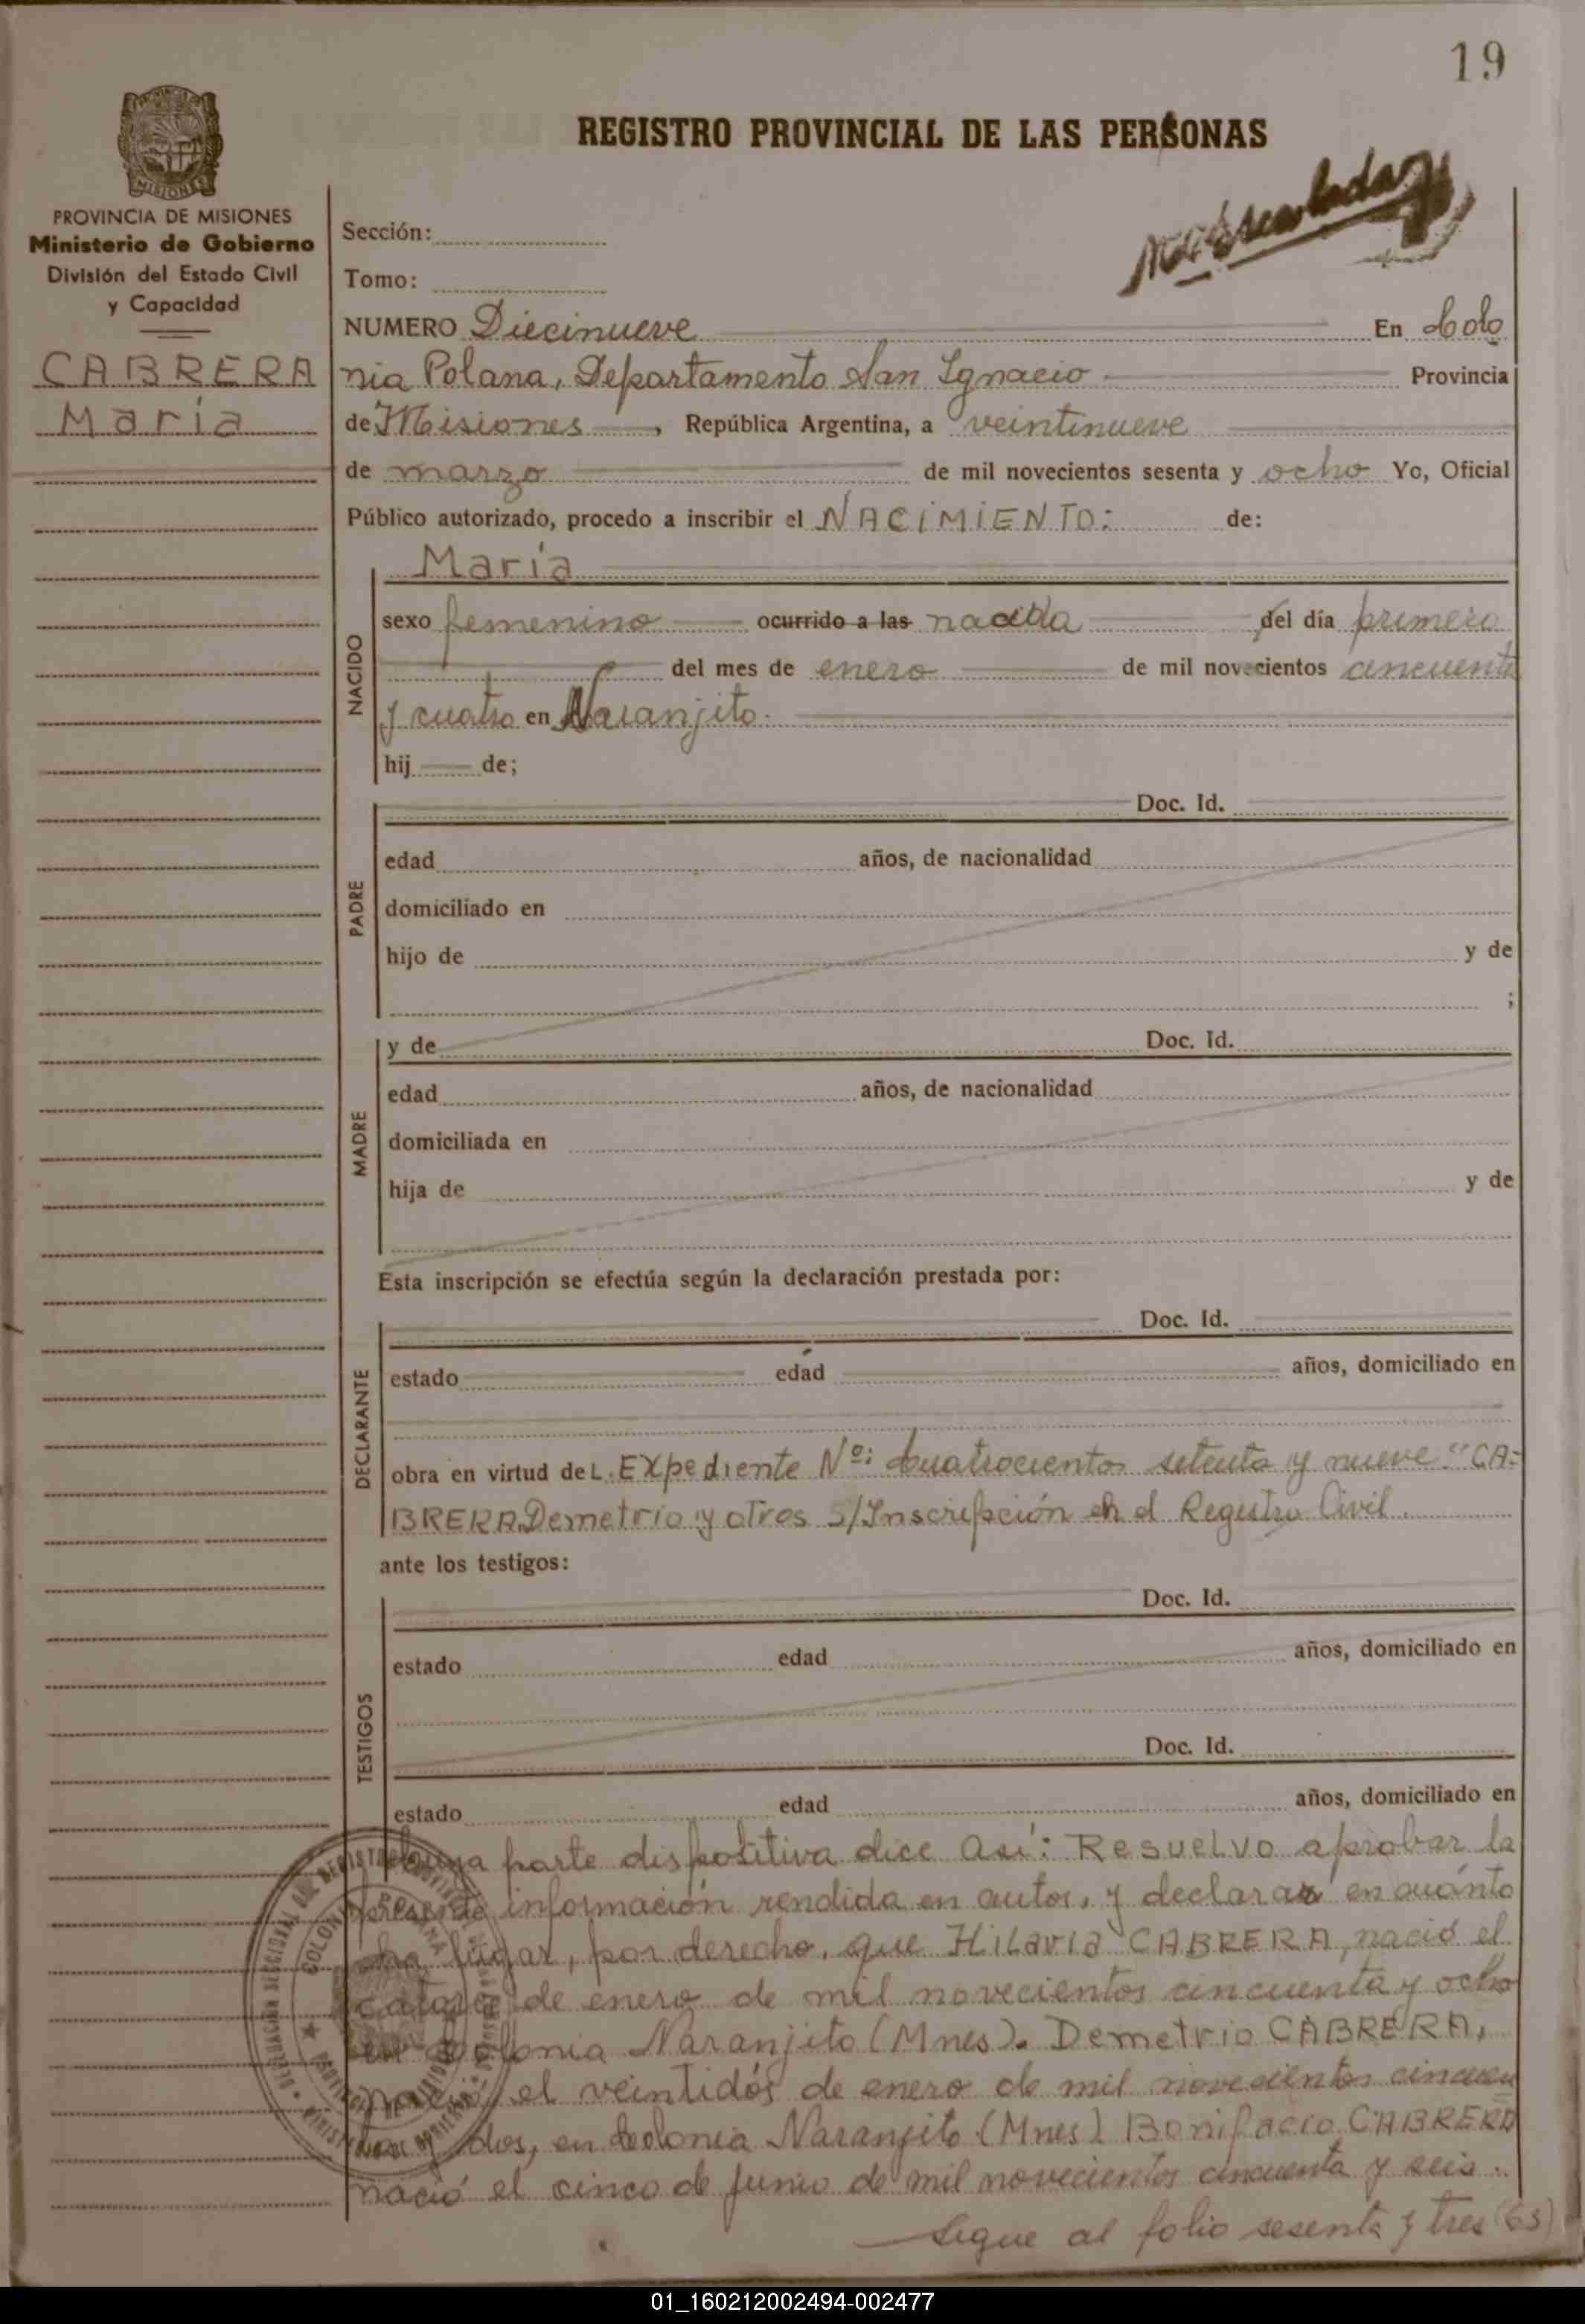 19
REGISTRO PROVINCIAL DE LAS PERSONAS
MISIONES
PROVINCIA DE MISIONES
Ministerio de Gobierno
División del Estado Civil
y Capacidad
CABRERA
María
Sección:
Tomo:
NUMERO Diecinueve En Colo
nia Polana, Departamento San Ignacio Provincia
de Misiones, República Argentina, a veintinueve
de marzo de mil novecientos sesenta y ocho Yo, Oficial
Público autorizado, procedo a inscribir el NACIMIENTO: de:
María
NACIDO
sexo femenino ocurrido a las nacida del día primero
del mes de enero de mil novecientos cincuenta
y cuatro en Naranjito.
hij de;
PADRE
Doc. Id.
edad años, de nacionalidad
domiciliado en
hijo de y de
;
MADRE
y de Doc. Id.
edad años, de nacionalidad
domiciliada en
hija de y de
Esta inscripción se efectúa según la declaración prestada por:
DECLARANTE
Doc. Id.
estado edad años, domiciliado en
obra en virtud deL. EXpediente Nº: Cuatrocientos setenta y nueve "CA-
BRERA Demetrio y otros S/Inscripción en el Registro Civil
ante los testigos:
TESTIGOS
Doc. Id.
estado edad años, domiciliado en
Doc. Id.
estado edad años, domiciliado en
Cuya parte dispositiva dice así: Resuelvo aprobar la
presente información rendida en autos, y declarar en cuánto
ha lugar, por derecho, que Hilaria CABRERA, nació el
catorce de enero de mil novecientos cincuenta y ocho
en Colonia Naranjito (Mnes). Demetrio CABRERA,
nació el veintidós de enero de mil novecientos cincuen
ta y dos, en Colonia Naranjito (Mnes) Bonifacio CABRERA
nació el cinco de Junio de mil novecientos cincuenta y seis.
Sigue al folio sesenta y tres (63)
01_160212002494-002477